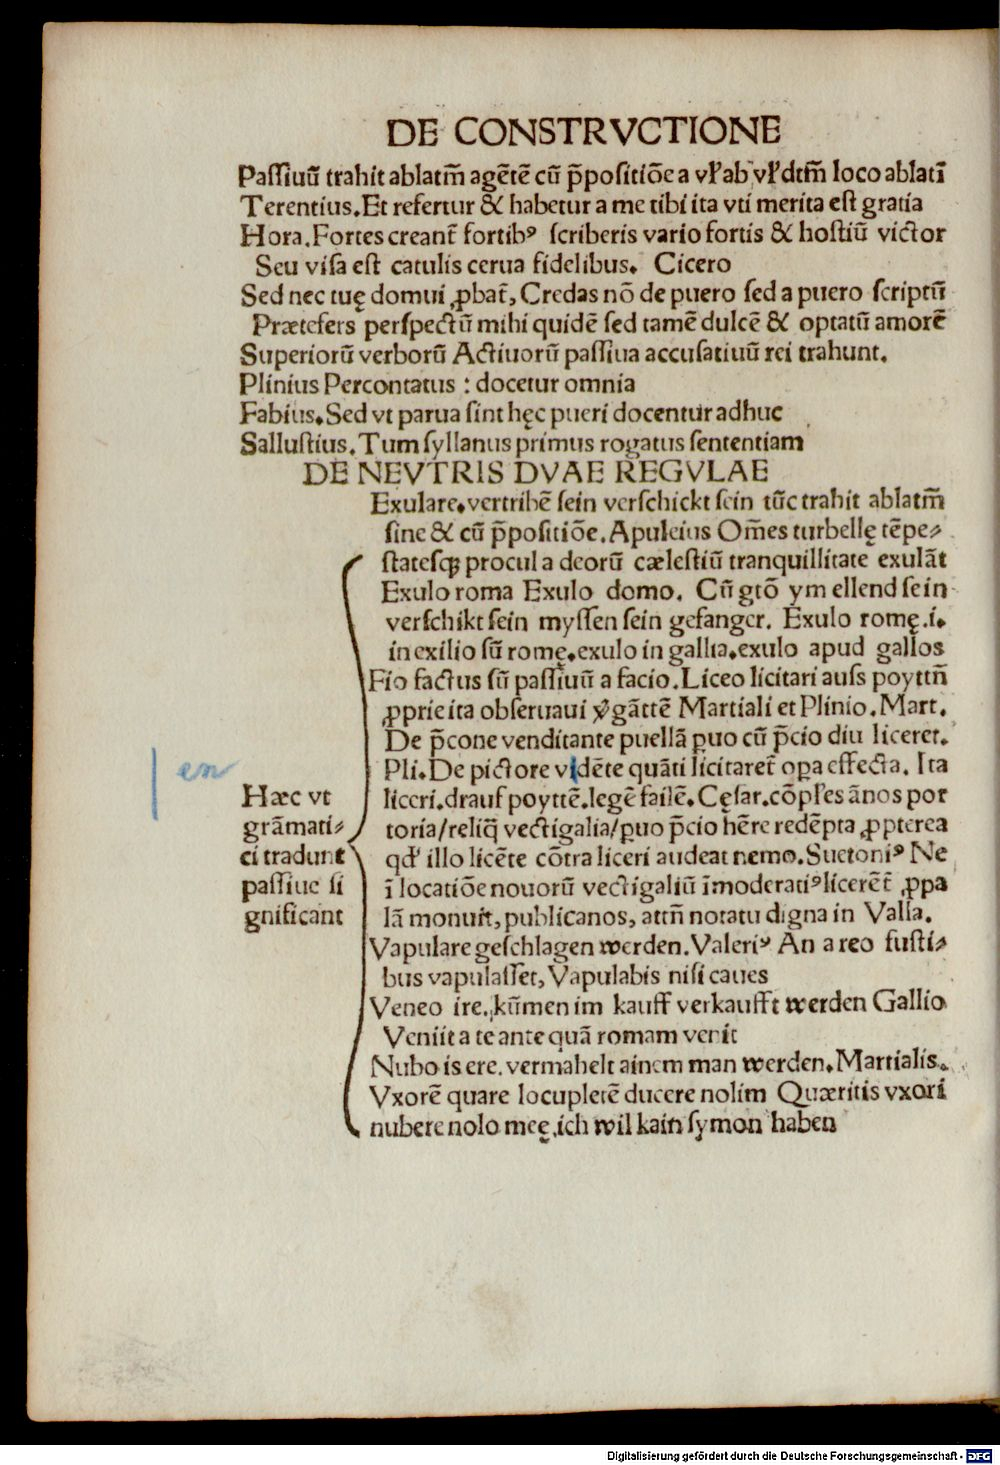 DE CONSTRVCTIONE
Passiuū trahit ablatm̄ agētē cū p̄positiōe a vl' ab vl' dtm̄ loco ablatī
Terentius. Et refertur & habetur a me tibi ita vti merita est gratia
Hora. Fortes creant̄ fortibꝰ scriberis vario fortis & hostiū victor
Seu visa est catulis cerua fidelibus. Cicero
Sed nec tuę domui ꝓbat̄, Credas nō de puero sed a puero scriptū
Præsefers perspectū mihi quidē sed tamē dulcē & optatū amorē
Superiorū verborū Actiuorū passiua accusatiuū rei trahunt.
Plinius Percontatus : docetur omnia
Fabius. Sed vt parua sint hęc pueri docentur adhuc
Sallustius. Tum syllanus primus rogatus sententiam
DE NEVTRIS DVAE REGVLAE
Exulare. vertribē sein verschickt sein tūc trahit ablatm̄
sine & cū p̄positiōe. Apuleius Om̄es turbellę tēpe⸗
statesqꝫ procul a deorū cælestiū tranquillitate exulāt
Exulo roma Exulo domo. Cū gtō ym ellend sein
verschikt sein myssen sein gefanger. Exulo romę .i.
in exilio sū romę. exulo in gallia. exulo apud gallos
Fio factus sū passiuū a facio. Liceo licitari auss poyttn̄
ꝓprie ita obseruaui gāttē Martiali et Plinio. Mart.
De p̄cone venditante puellā ꝑuo cū p̄cio diu liceret.
Pli. De pictore vidēte quāti licitaret̄ oꝑa effecta. Ita
liceri. drauf poyttē. legē failē. Cęsar. cōpl'es ānos por
toria/reliq̄ vectigalia/ꝑuo p̄cio hēre redēpta ꝓpterea
qd' illo licēte cōtra liceri audeat nemo. Suetoniꝰ Ne
ī locatiōe nouorū vectigaliū īmoderatiꝰ licerēt̄ ꝓpa
lā monuit, publicanos, attn̄ notatu digna in Valla.
Vapulare geschlagen werden. Valeriꝰ An a reo fusti⸗
bus vapulasset, Vapulabis nisi caues
Veneo ire. kūmen im kauff verkaufft werden Gallio
Veniit a te ante quā romam venit
Nubo is ere. vermahelt ainem man werden. Martialis.
Vxorē quare locupletē ducere nolim Quæritis vxori
nubere nolo meę. ich wil kain symon haben
en
Hæc vt
grāmati⸗
ci tradunt
passiue si
gnificant
Digitalisierung gefördert durch die Deutsche Forschungsgemeinschaft - DFG